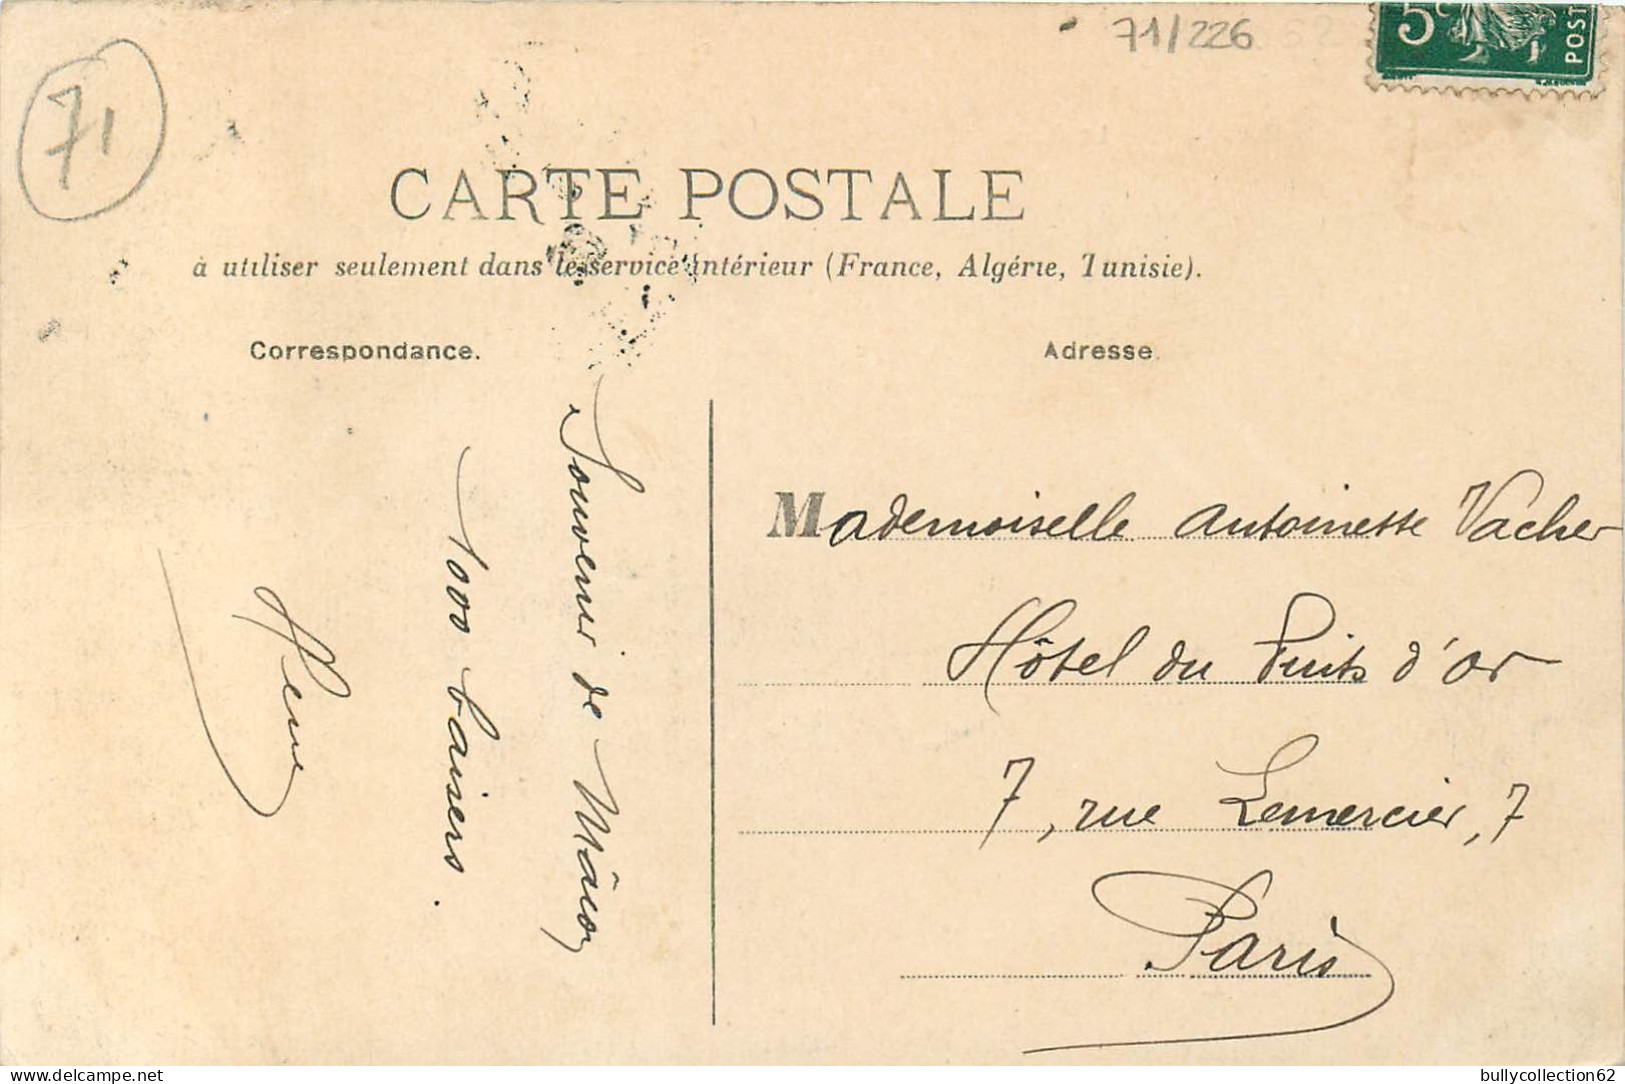 71/226
71
5c
POST
CARTE POSTALE
à utiliser seulement dans le service intérieur (France, Algérie, Tunisie).
Correspondance.
Adresse.
Souvenir de Mâcon
1000 baisers.
Mademoiselle Antoinette Vacher
Hôtel du Puits d'or
7, rue Lemercier, 7
Paris
bullycollection62